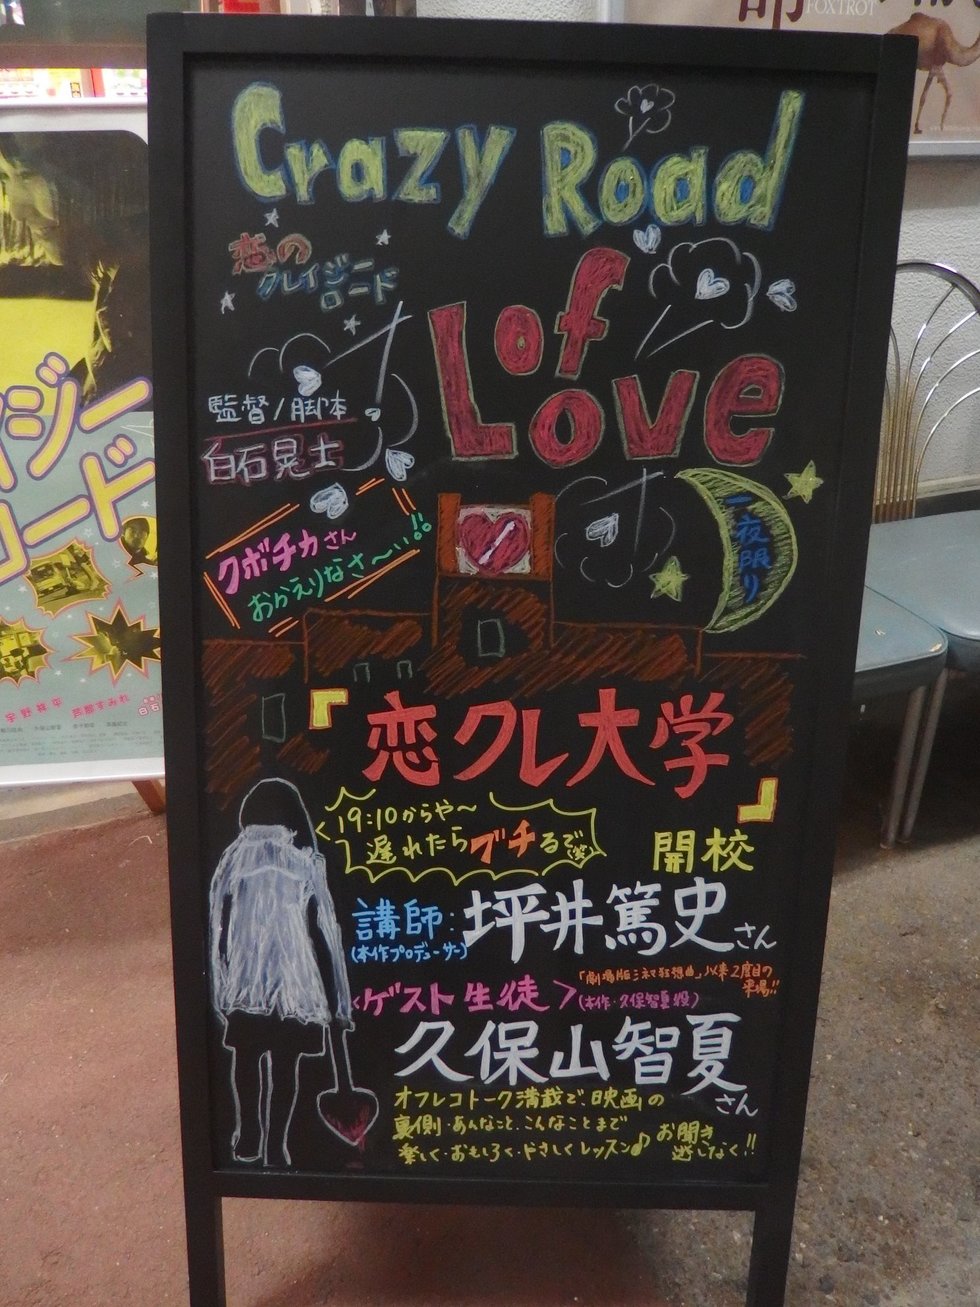 FOXTROT
Crazy Road
of
Love
恋の
クレイジー
ロード
監督/脚本
白石晃士
クボチカさん
おかえりなさ〜い!!
一夜限り
『恋クレ大学』
19:10からや〜
遅れたらブチるで(笑)
開校
講師:坪井篤史さん
(本作プロデューサー)
「劇場版シネマ狂想曲」以来2度目の
来場!!
<ゲスト生徒>
久保山智夏さん
オフレコトーク満載で、映画の
裏側・あんなこと、こんなことまで
楽しく・おもしろく・やさしくレッスン♪
お聞き
逃しなく!!
イジー
ロード
宇野祥平
芦那すみれ